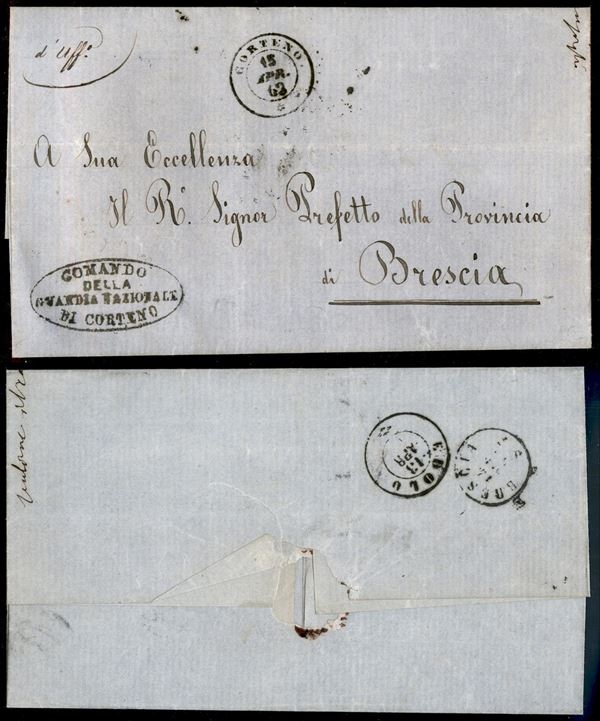 d'Uff.º
CORTENO
APR.
62
A Sua Eccellenza
Il R.º Signor Prefetto della Provincia
di Brescia
COMANDO
DELLA
GUARDIA NAZIONALE
DI CORTENO
EDOLO
13
APR
BRESCIA